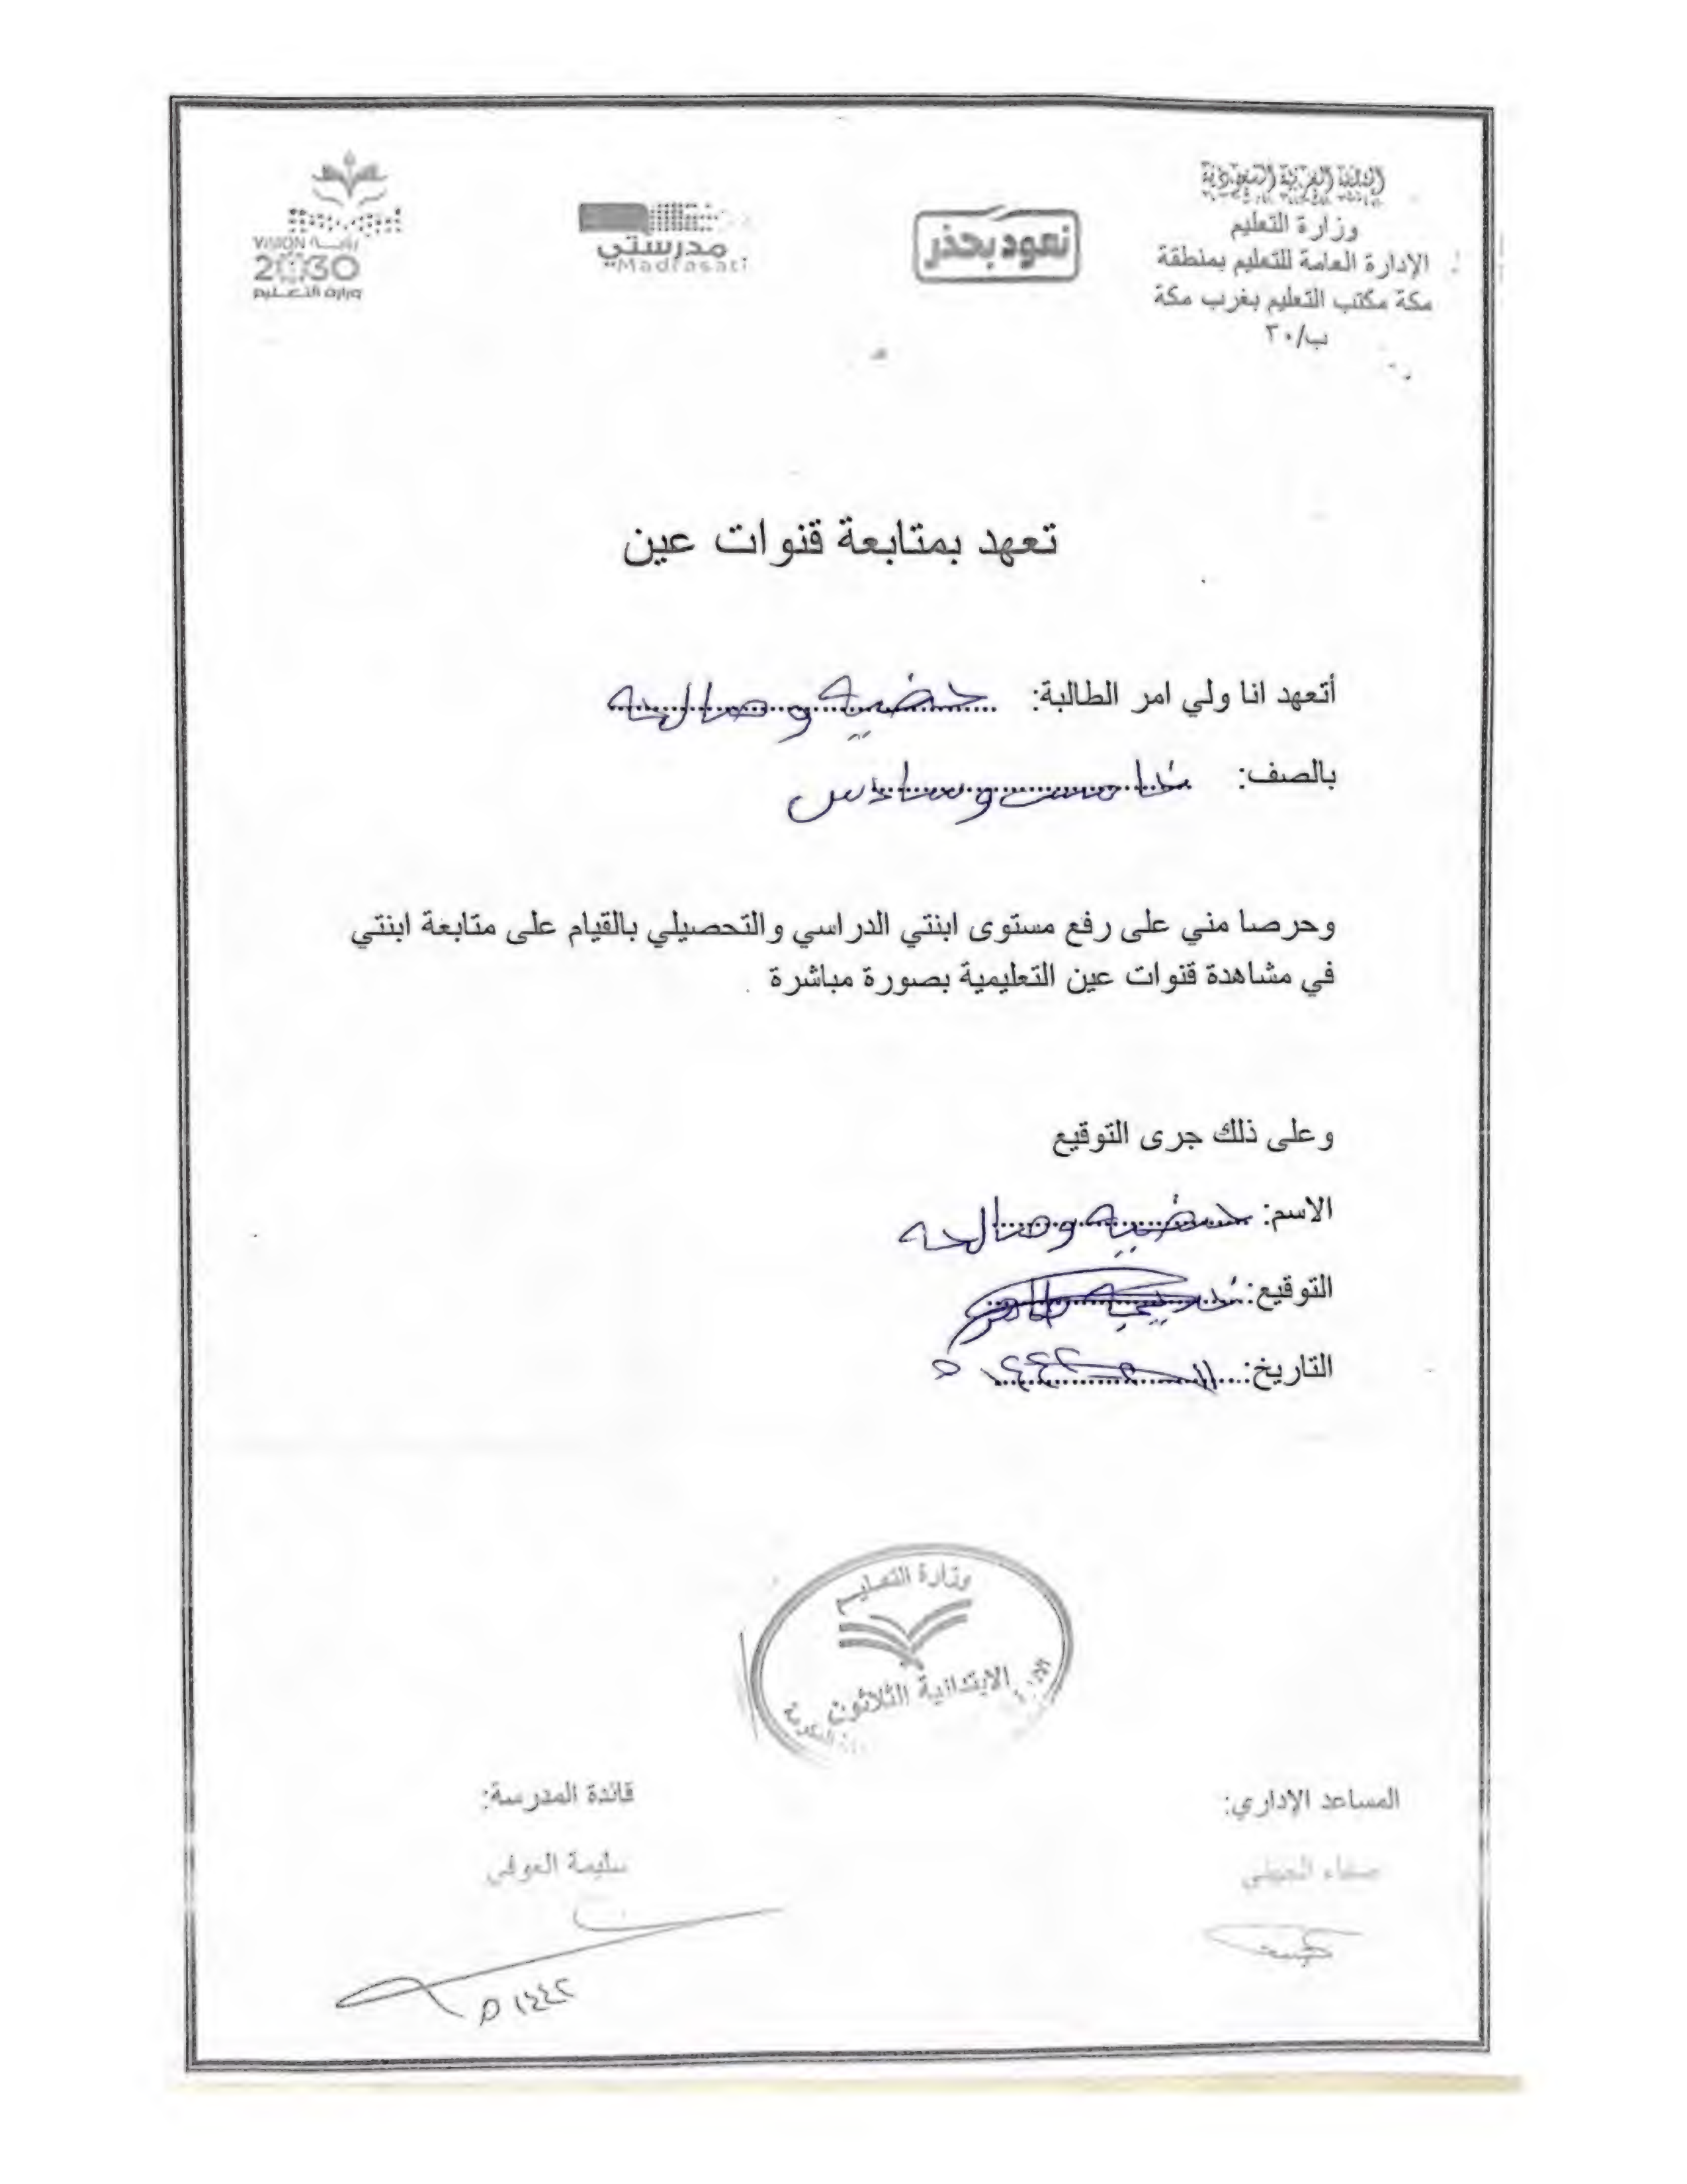 المملكة العربية السعودية
وزارة التعليم
الإدارة العامة للتعليم بمنطقة
مكة مكتب التعليم بغرب مكة
ب/٣٠
نعود بحذر
مدرستي
Madrasati
VISION رؤيـــة
2030
وزارة التعـليم
تعهد بمتابعة قنوات عين
أتعهد انا ولي امر الطالبة: حضيه وصالحه
بالصف: خامس وسادس
وحرصا مني على رفع مستوى ابنتي الدراسي والتحصيلي بالقيام على متابعة ابنتي
في مشاهدة قنوات عين التعليمية بصورة مباشرة .
وعلى ذلك جرى التوقيع
الاسم: حضيه وصالحه
التوقيع:
التاريخ:
وزارة التعليم
الابتدائية الثلاثون
المساعد الإداري:
قائدة المدرسة:
سليمة العوفي
١٤٤٢ ه